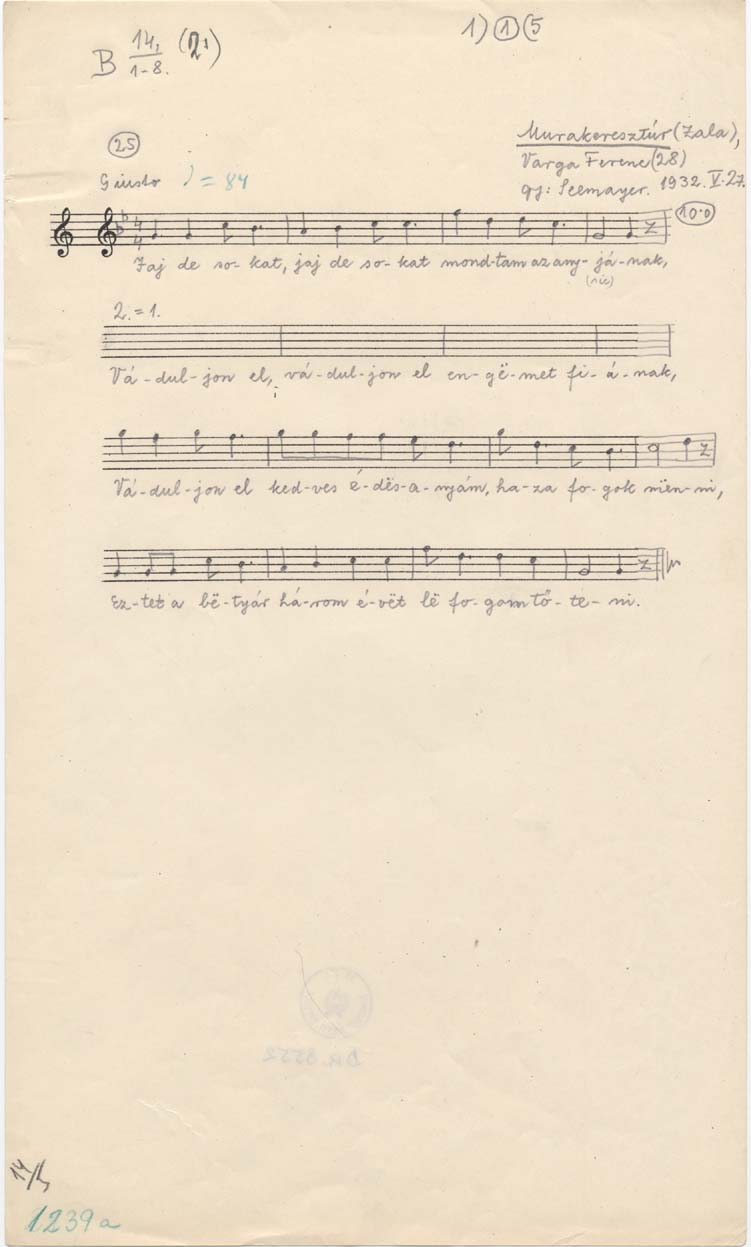 B 14, 1-8. (21)
1) 1 (5
25
Murakeresztúr (Zala),
Varga Ferenc (28)
gj: Seemayer. 1932. V. 27.
Giusto ♩ = 84
10.0
4 4
Jaj de so-kat, jaj de so-kat mond-tam az any-já-nak,
(sic)
2. = 1.
Vá-dul-jon el, vá-dul-jon el en-gë-met fi-á-nak,
Vá-dul-jon el ked-ves é-dës-a-nyám, ha-za fo-gok mën-ni,
Ez-tet a bë-tyár há-rom é-vët lë fo-gom tő-te-ni.
1239a